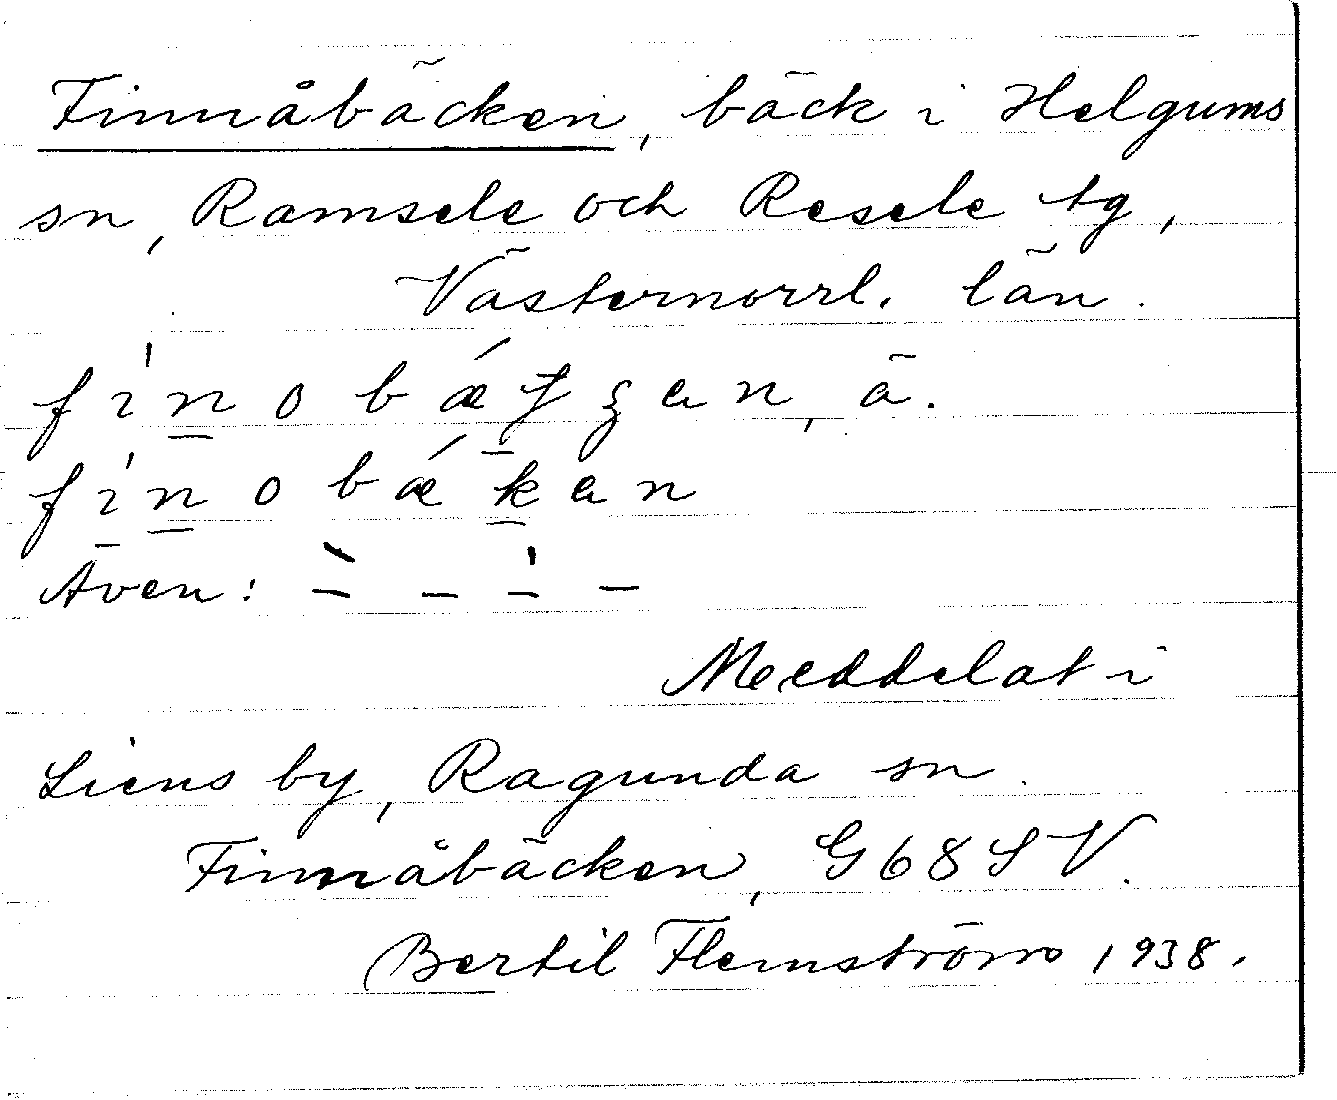 Finnåbäcken, bäck i Helgums
sn, Ramsele och Resele tg,
Västernorrl. län.
fìn̠obǽƭʒən, ä.
fìn̠obǽk̠ən
Även: –̀ – –̍ –
Meddelat i
Liens by, Ragunda sn.
Finnåbäcken, G68SV.
Bertil Flemström 1938.